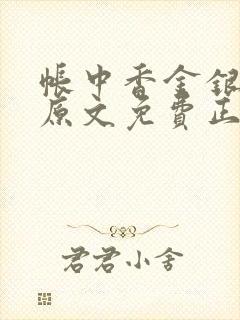 帐中香金银
原文免费正
君君小舍